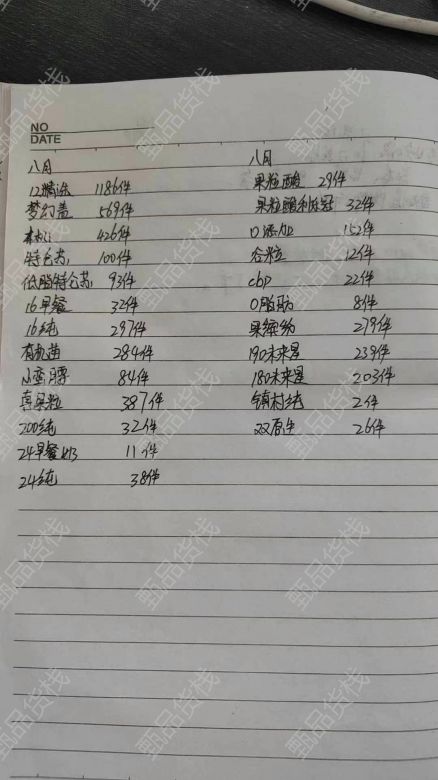 NO
DATE
八月
12精选 1186件
梦幻盖 569件
426件
特仑苏 100件
低脂特仑苏 93件
16早餐 32件
16纯 297件
有机苗 284件
小蛮腰 84件
真果粒 387件
200纯 32件
24早餐 11件
24纯 38件
八月
果粒酸 29件
果粒酸利乐冠 32件
0添加 152件
谷粒 12件
cbp 22件
0脂肪 8件
果缤纷 279件
190未来星 239件
180未来星 203件
纯 2件
双原生 26件
甄品货栈